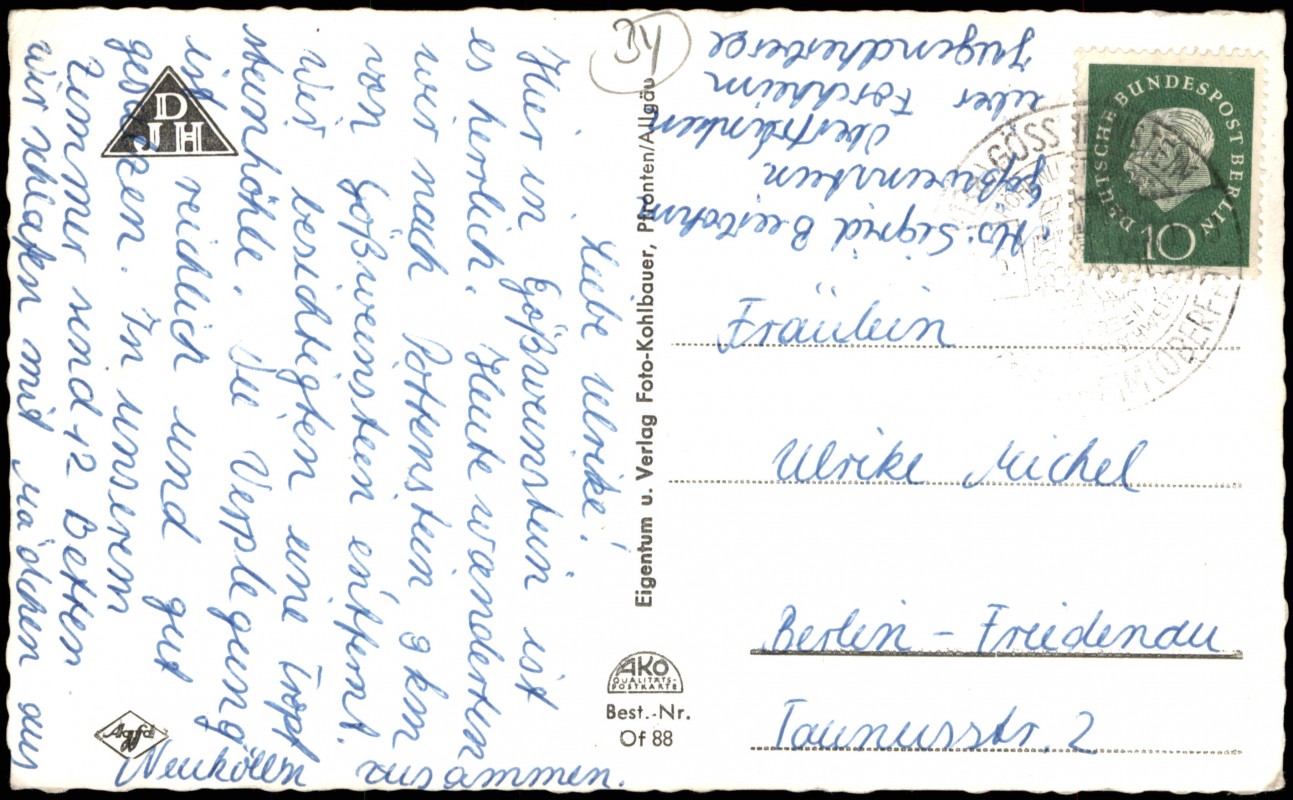 Liebe Ulrike!
Hier in Gößweinstein ist
es herrlich. Heute wanderten
wir nach Pottenstein 9 km
von Gößweinstein entfernt.
Wir besichtigten eine Tropf
steinhöhle. Die Verpflegung
ist reichlich und gut
geblieben. In unserem
Zimmer sind 12 Betten
wir schlafen mit Mädchen aus
Neukölln zusammen.
DJH
Agfa
Eigentum u. Verlag Foto-Kohlbauer, Pfronten/Allgäu
AKO
QUALITÄTS-
POSTKARTE
Best.-Nr.
Of 88
Abs: Sigrid
Gößweinstein
Oberfranken
über Forchheim
Jugendherberge
DEUTSCHE BUNDESPOST BERLIN
10
GÖSS
OBERF
Fräulein
Ulrike Michel
Berlin - Friedenau
Taunusstr. 2